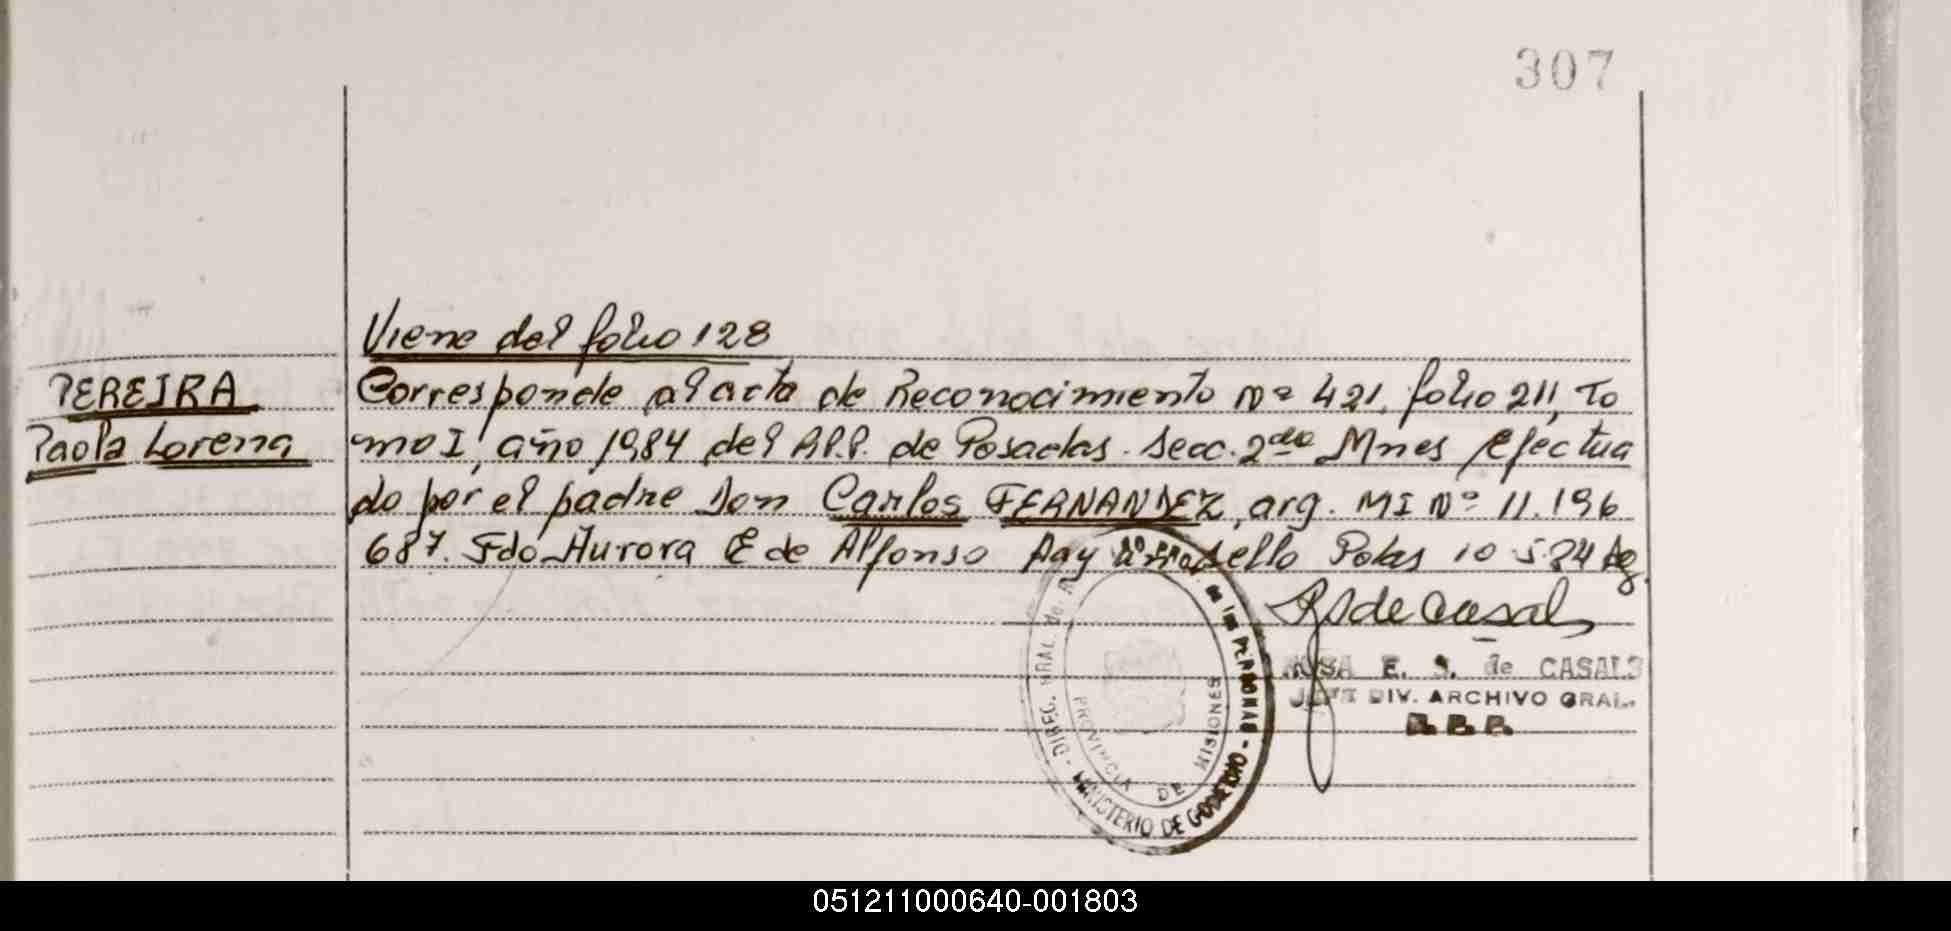 307
Viene del folio 128
PEREIRA
Paola Lorena
Corresponde al acta de Reconocimiento Nº 421, folio 211, To
mo I, año 1984 del R.P.P. de Posadas. Secc. 2da Mnes Efectua
do por el padre Don Carlos FERNANDEZ, arg. MI Nº 11.196
687. Fdo Aurora E de Alfonso Hay sello Pdas 10 5.84
RSdeCasals
ROSA E. S. de CASALS
JEFE DIV. ARCHIVO GRAL.
DIREC. GRAL. de de las PERSONAS
PROVINCIA DE MISIONES
MINISTERIO DE GOBIERNO
051211000640-001803